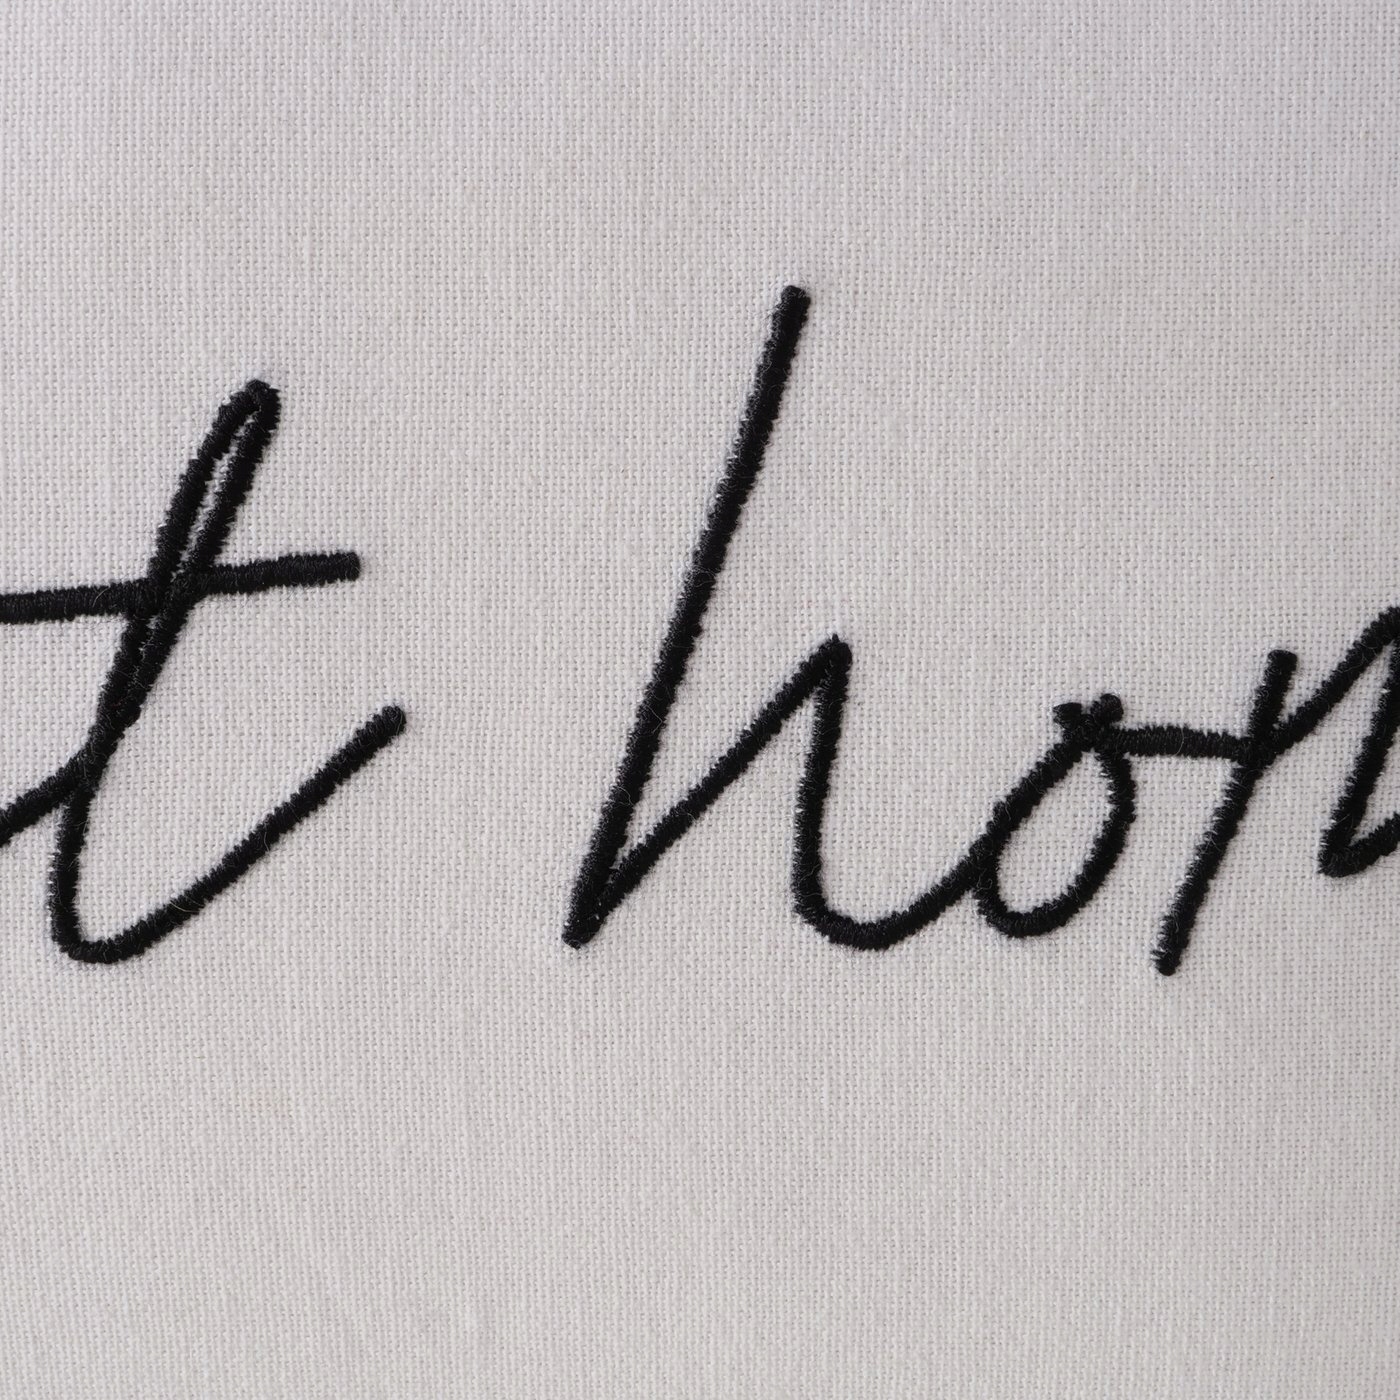 t hom